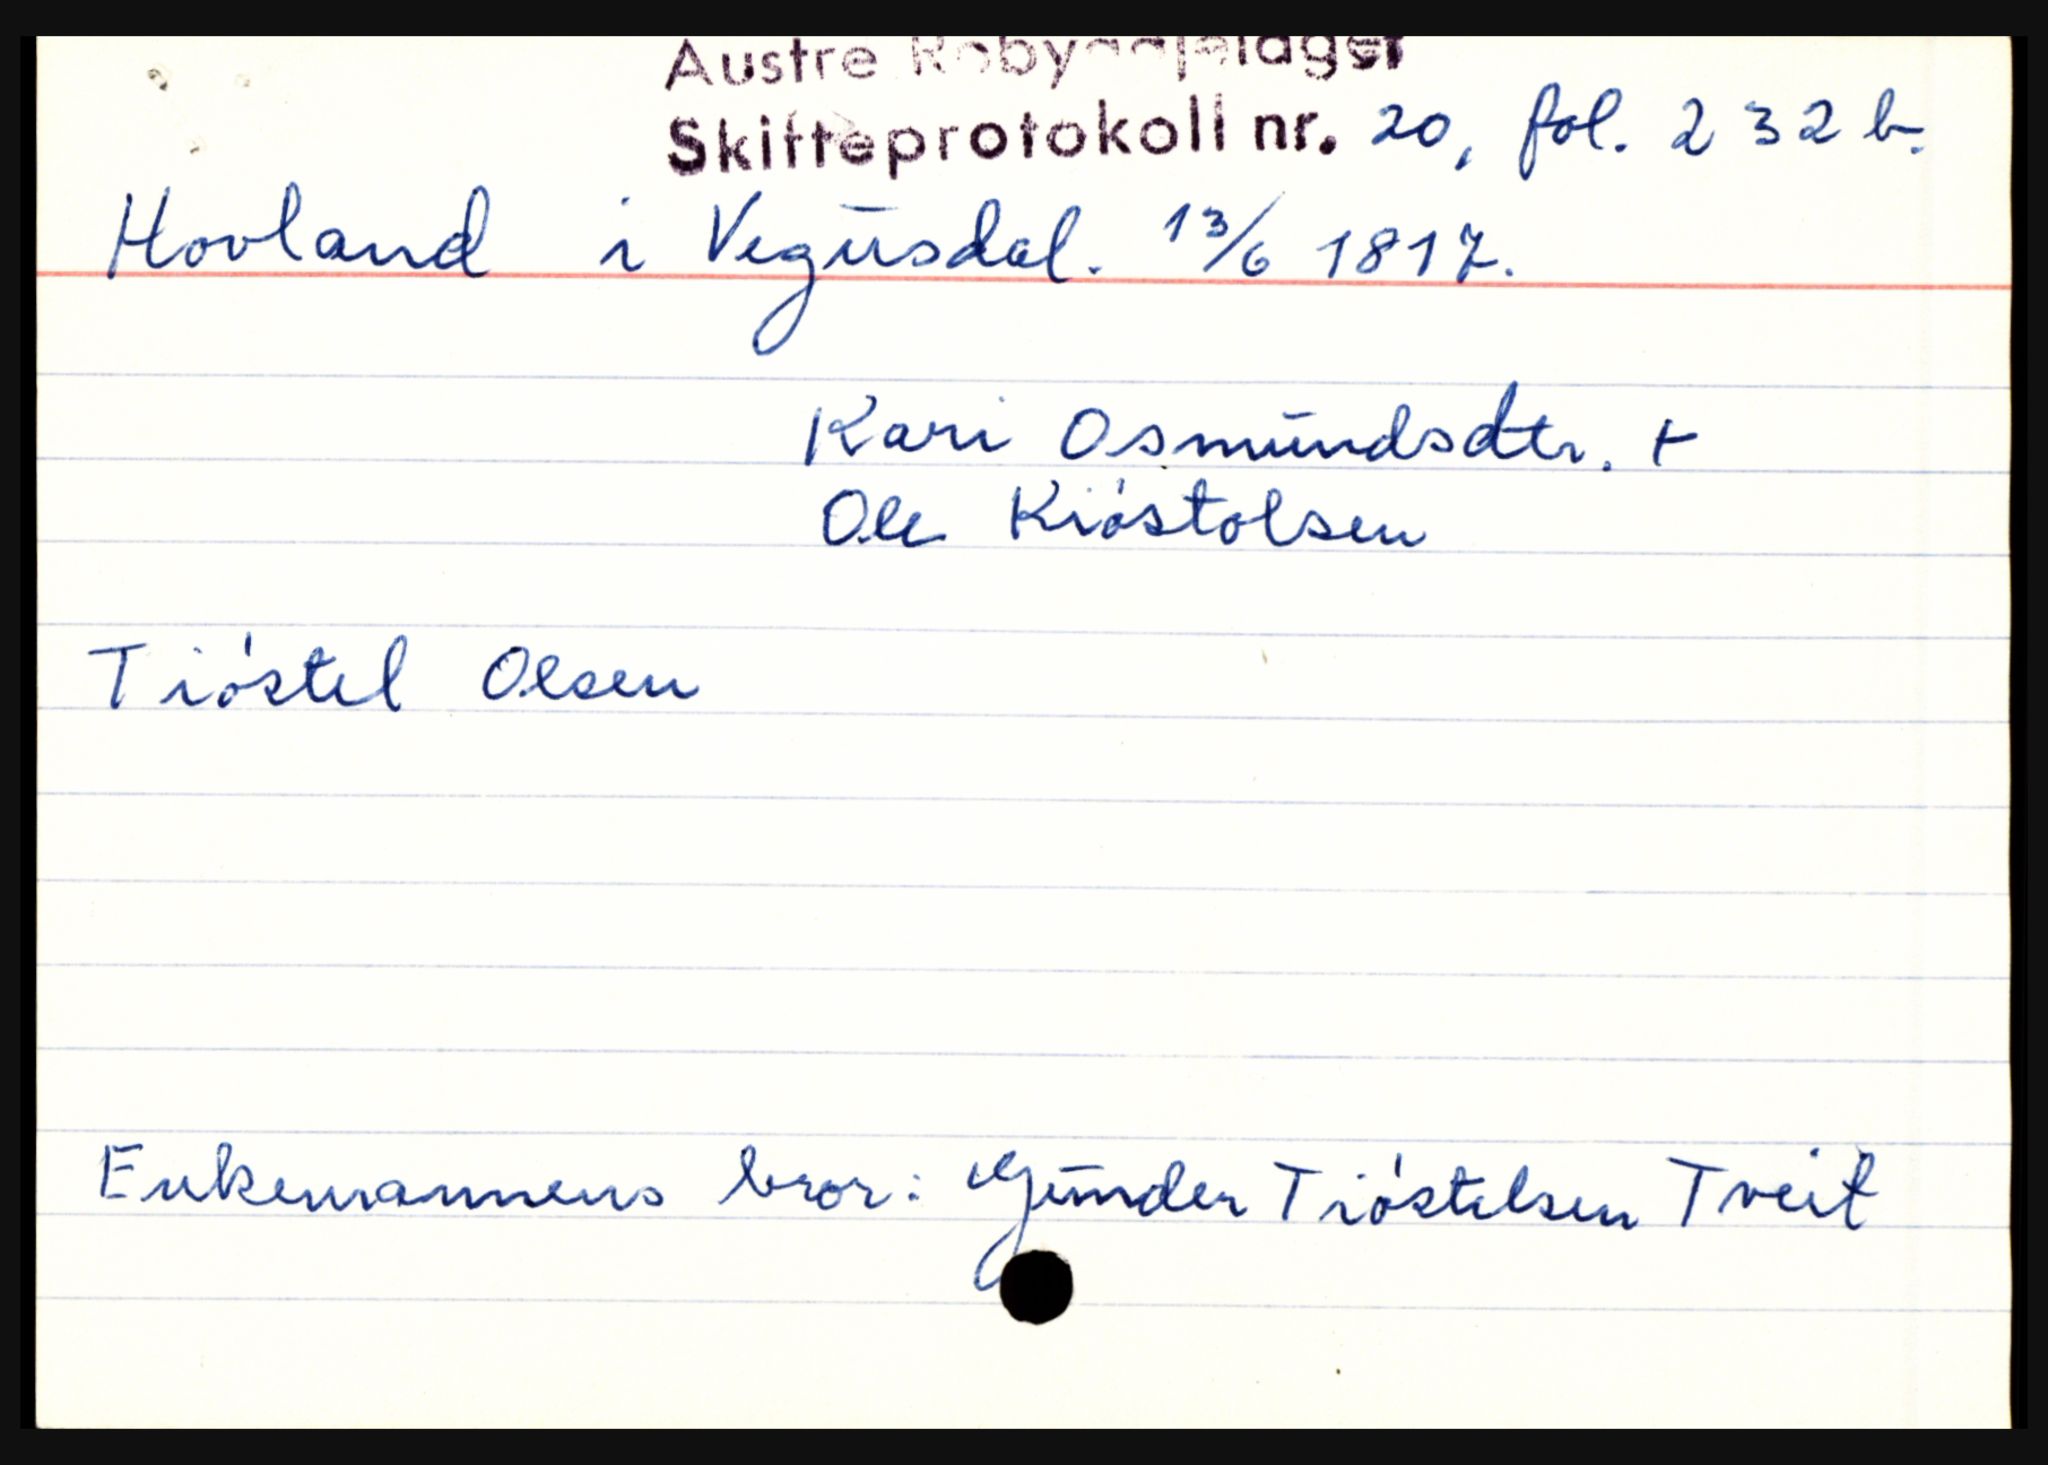 Austre Robyggjelager
Skifteprotokoll nr. 20, fol. 232 b.
Hovland i Vegusdal. 13/6 1817.
Kari Osmundsdtr. +
Ole Kióstolsen
Tióstel Olsen
Enkemannens bror: Gunder Tióstelsen Tveit